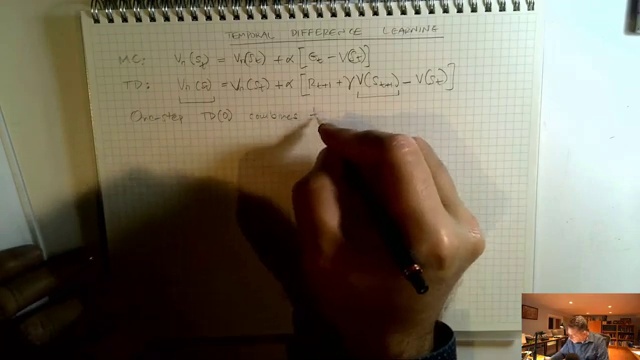 TEMPORAL DIFFERENCE LEARNING
MC: Vπ(St) = Vπ(St) + α [Gt − V(St)]
TD: Vπ(St) = Vπ(St) + α [Rt+1 + γV(St+1) − V(St)]
One-step TD(0) combines